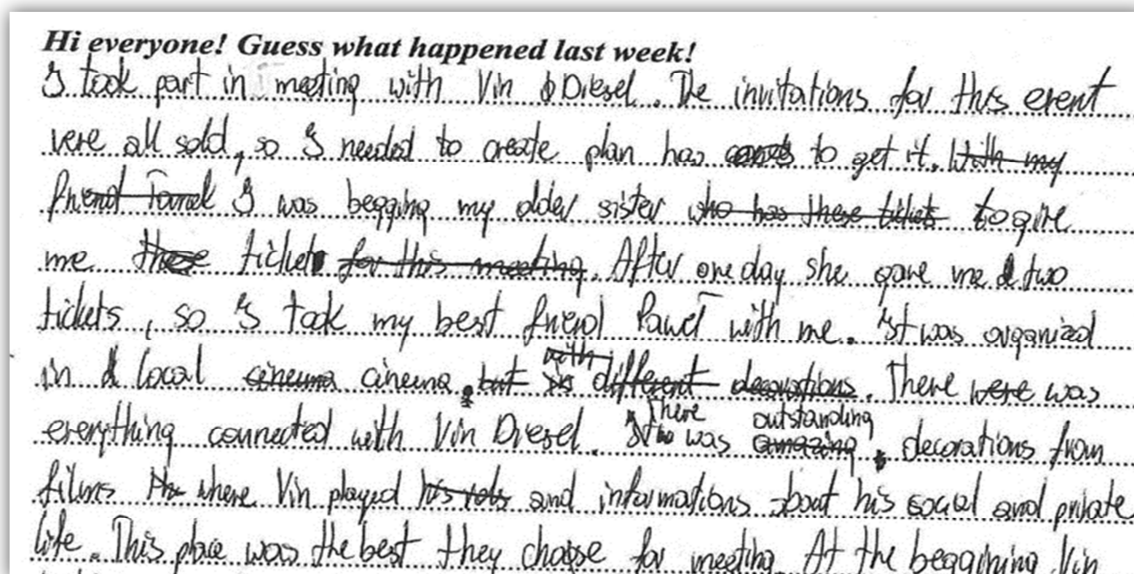 Hi everyone! Guess what happened last week!
I took part in meeting with Vin Diesel. The invitations for this event
were all sold, so I needed to create plan has to get it. With my
friend Paweł I was begging my older sister who has these tickets to give
me these ticket for this meeting. After one day she gave me two
tickets, so I took my best friend Paweł with me. It was organized
in local cinema cinema, but with different decorations. There were was
everything connected with Vin Diesel. There was outstanding amazing decorations from
films where Vin played his role and informations about his social and private
life. This place was the best they choose for meeting. At the beggining Vin